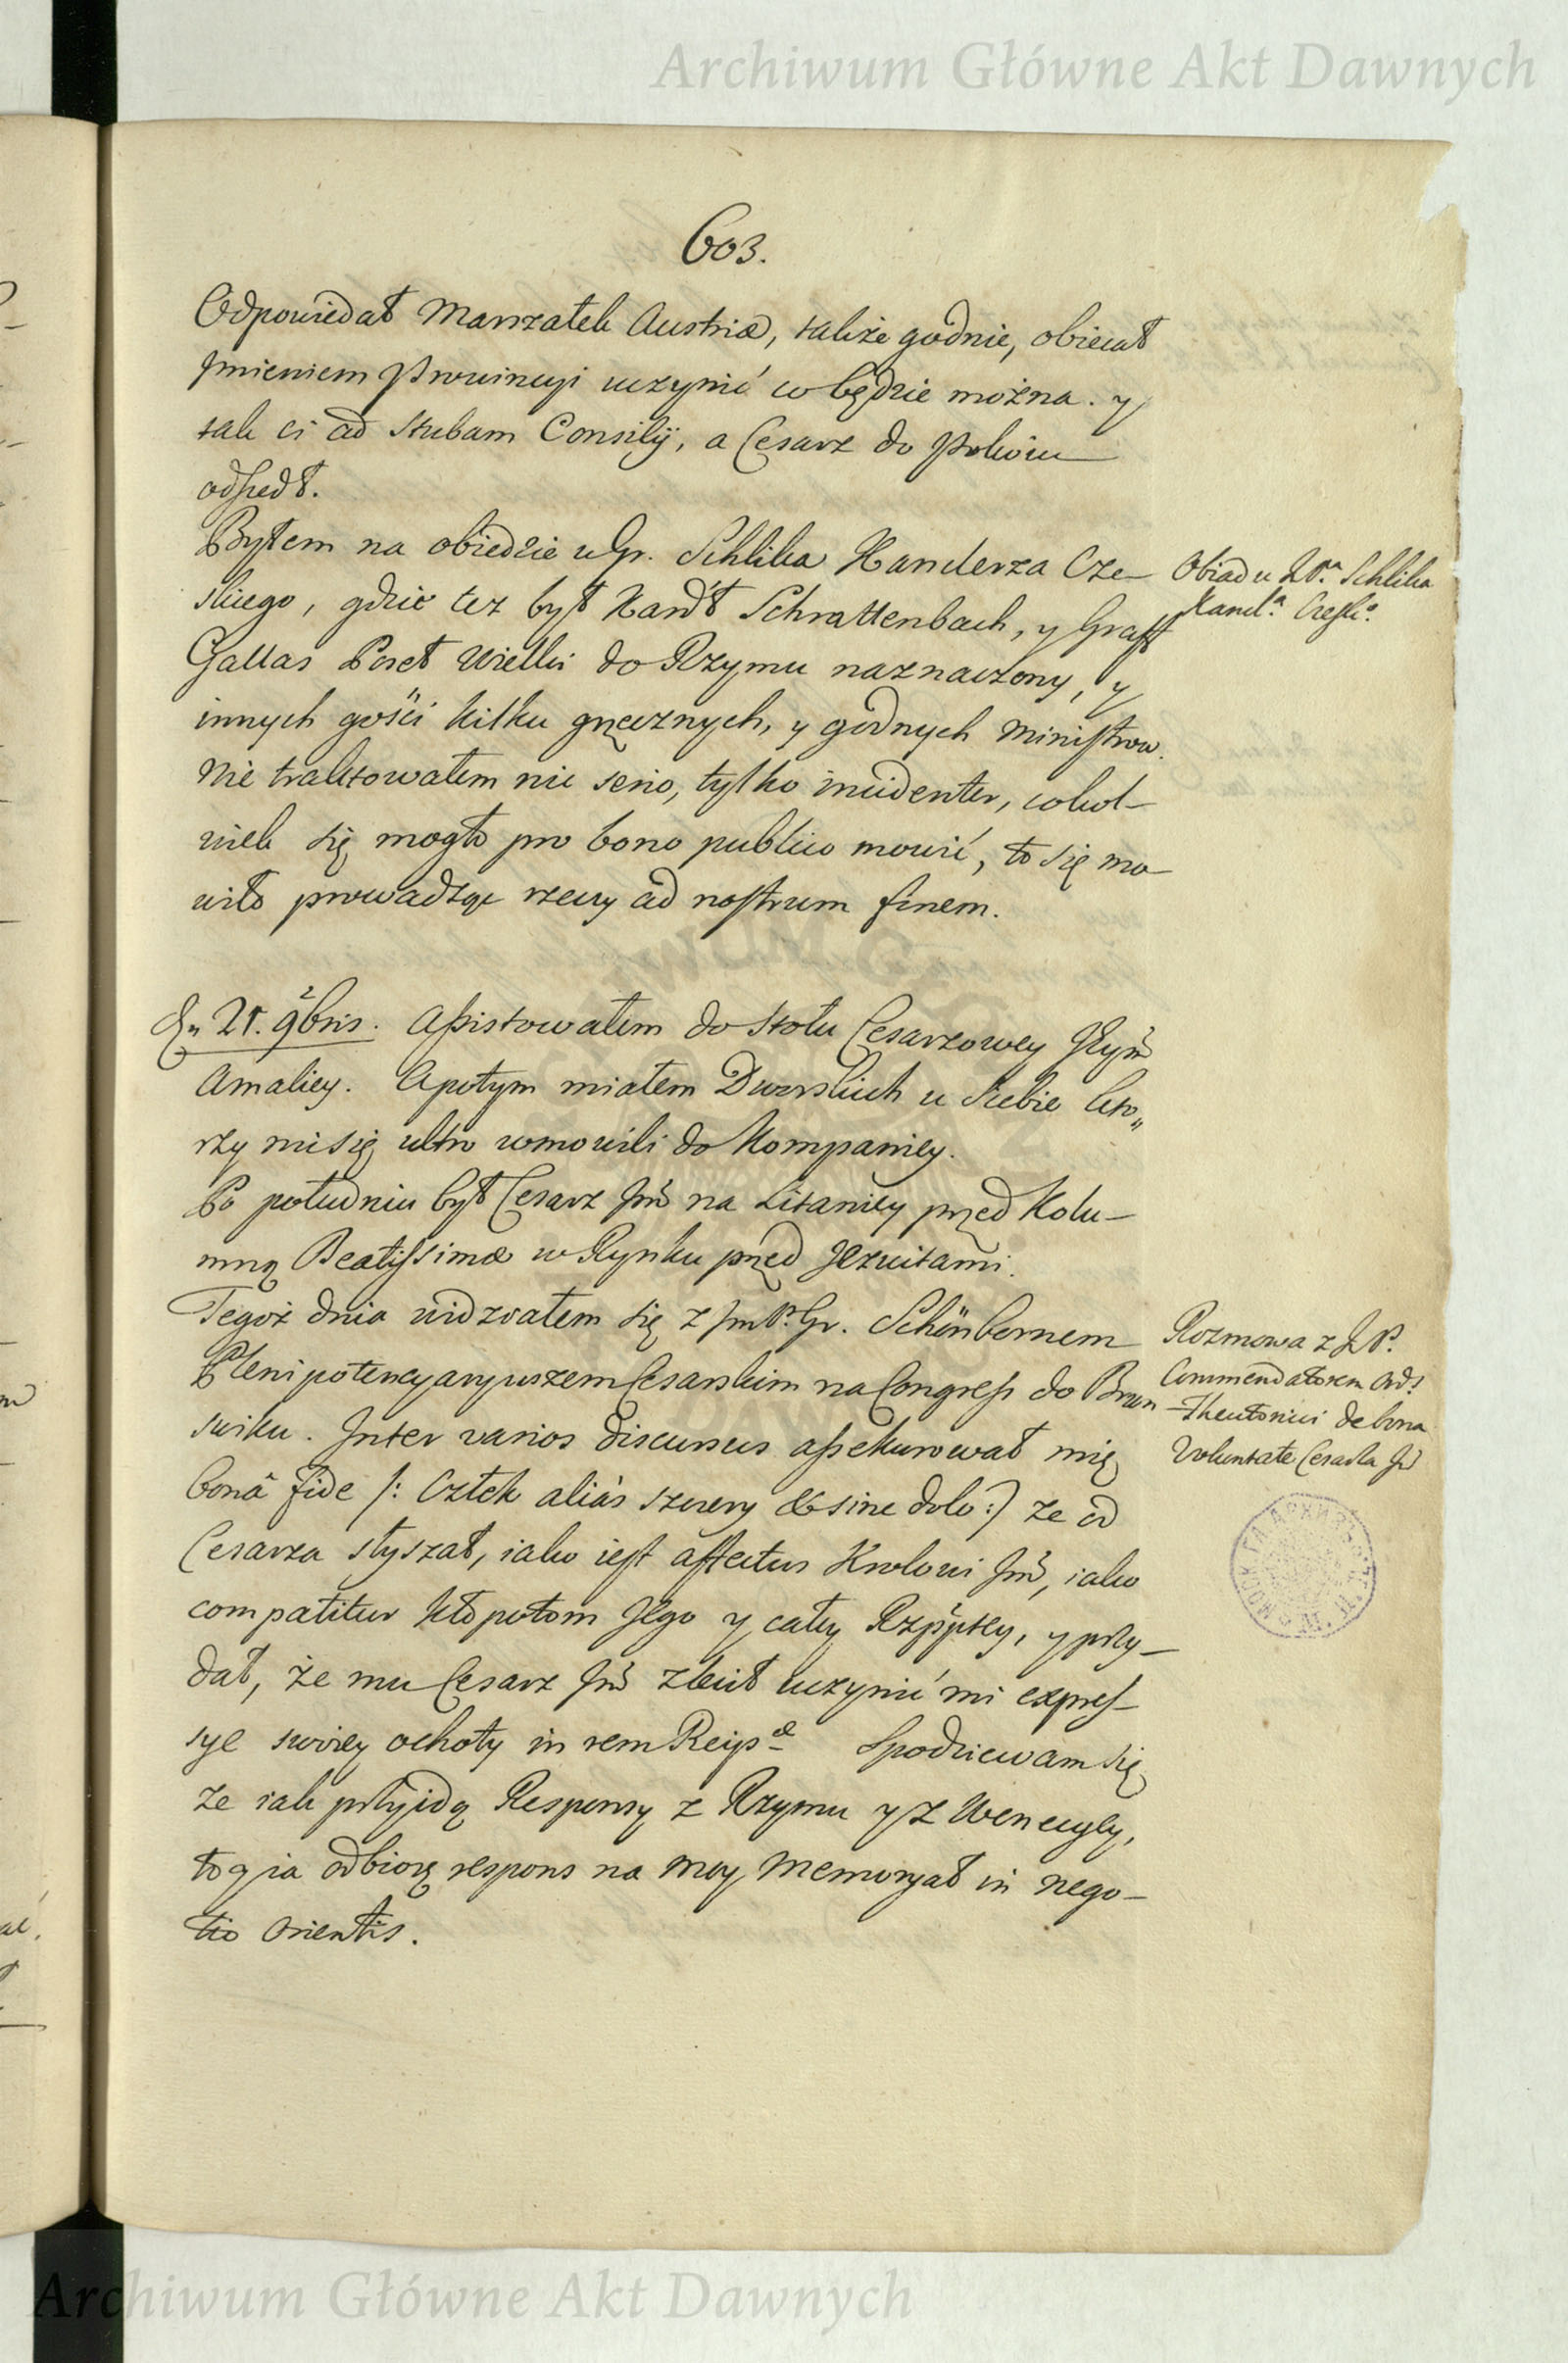 Archiwum Główne Akt Dawnych
603.
Odpowiedał Marszałek Austriæ, także godnie, obiecał
Jmieniem Prowincyi uczynić co będzie można. y
tak ci ad stubam Consilÿ, a Cesarz do Pokoiu
odszedł.
Byłem na obiedzie u Gr. Schlika Kanclerza Cze-
skiego, gdzie tez był Kard'ł Schrattenbach, y Graff
Gallas Poseł Wielki do Rzymu naznaczony, y
innych gości kilku grzecznych, y godnych Ministrow.
Nie traktowałem nic serio, tylko incidenter, cokol-
wiek się mogło pro bono publico mowić, to się mo-
wiło prowadząc rzeczy ad nostrum finem.
Obiad u J.P.ª Schlika
Kancl.ª Czesk.º
Dn 21. 9bris. Assistowałem do Stołu Cesarzowey Jeym̃
Amaliey. A potym miałem Dworskich u Siebie kto„
rzy mi się ultro wmowili do Kompaniey.
Po południu był Cesarz Jm̃ na Litaniey przed Kolu-
mną Beatissimæ w Rynku przed Jezuitami.
Tegoż dnia widzałem się z JmP. Gr. Schönbornem
Plenipotencyaryuszem Cesarskim na Congress do Brun
swiku. Inter varios discursus assekurował mię
bonâ fide /: Człek aliás szczery & sine dolo :/ ze od
Cesarza słyszał, iako iest affectus Krolowi Jm̃, iako
compatitur kłopotom Jego y całey Rzpptey, y przy-
dał, że mu Cesarz Jm̃ zlecił uczynić mi expres-
sye swoiey ochoty in rem Reipæ Spodziewam się
ze iak przyidą Responsy z Rzymu y z Wenecyey,
to y ia odbiorę respons na moy Memoryał in nego-
tio Orientis.
Rozmowa z J.P.
Commendatorem Ord.
Theutonici de bona
voluntate Cesarza Jm̃
Archiwum Główne Akt Dawnych